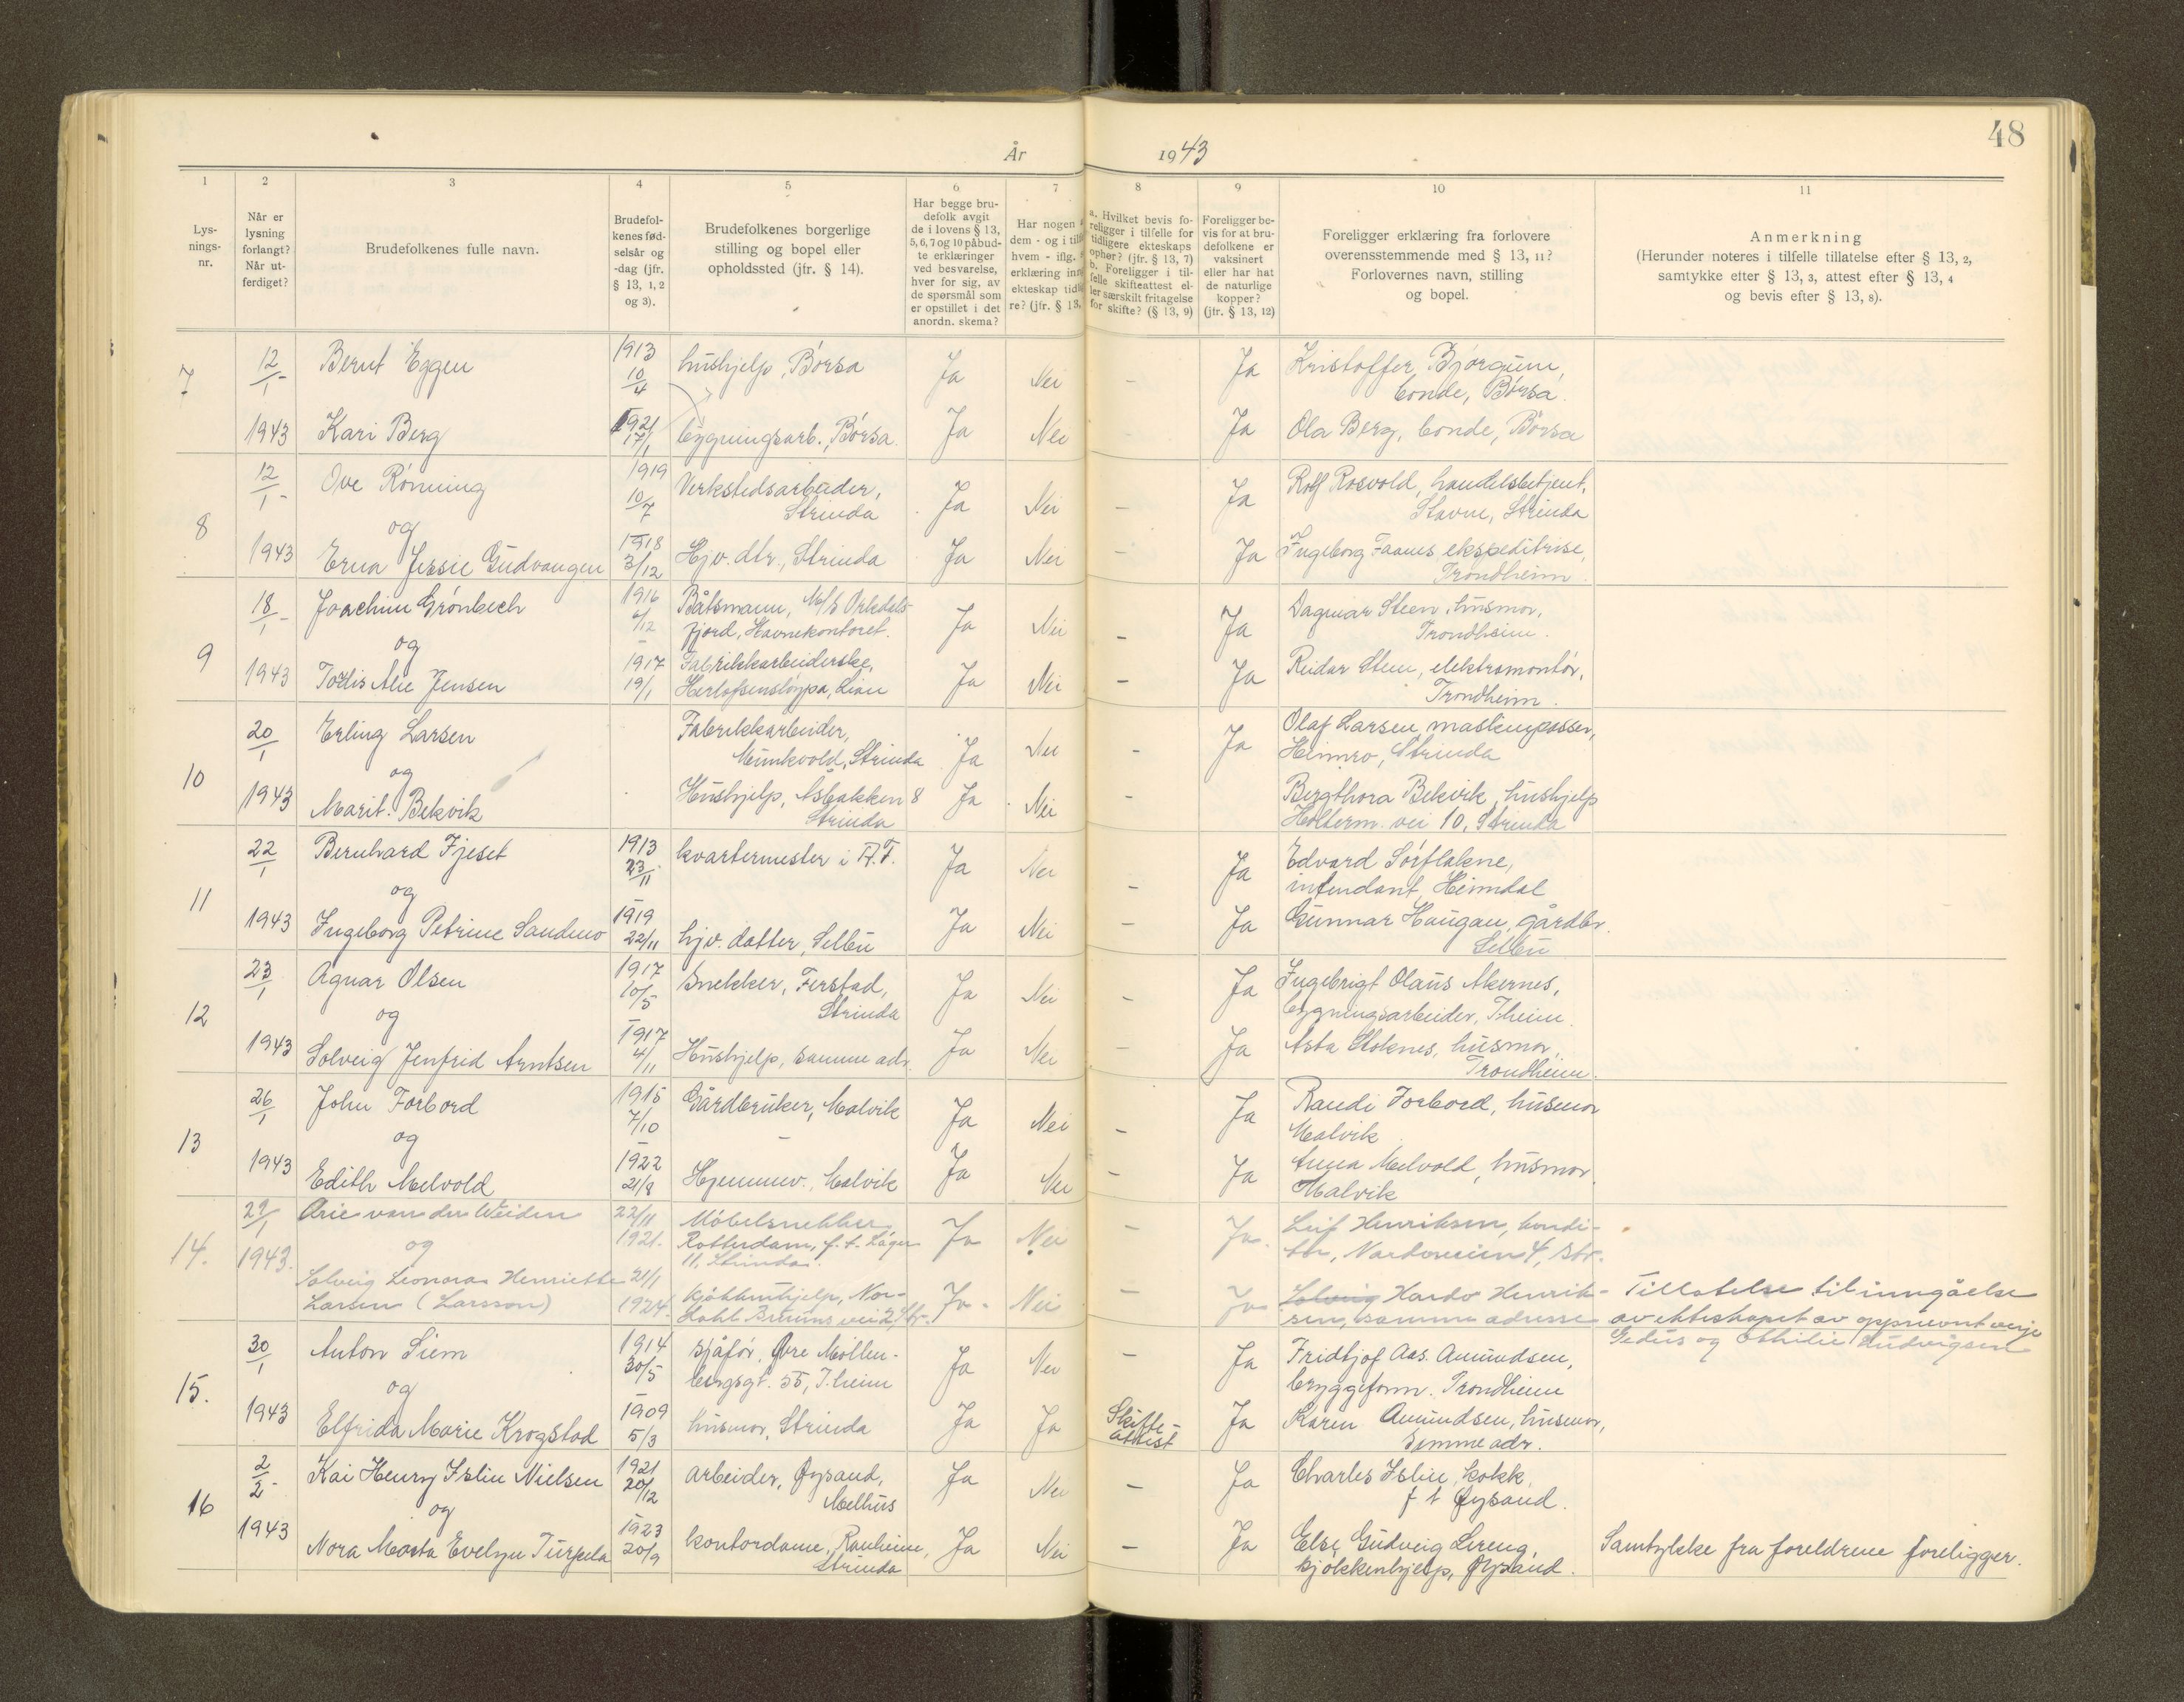 48
År 1943
1 2 3 4 5 6 7 8 9 10 11
Lys-
nings-
nr.
Når er
lysning
forlangt?
Når ut-
ferdiget?
Brudefolkenes fulle navn.
Brudefol-
kenes fød-
selsår og
-dag (jfr.
§ 13, 1, 2
og 3).
Brudefolkenes borgerlige
stilling og bopel eller
opholdssted (jfr. § 14).
Har begge bru-
defolk avgit
de i lovens § 13,
5, 6, 7 og 10 påbud-
te erklæringer
ved besvarelse,
hver for sig, av
de spørsmål som
er opstillet i det
anordn. skema?
Har nogen
dem - og i
hvem - iflg.
erklæring
ekteskap
re? (jfr. § 13,
a. Hvilket bevis fo-
religger i tilfelle for
tidligere ekteskaps
ophør? (jfr. § 13, 7)
b. Foreligger i til-
felle skifteattest el-
ler særskilt fritagelse
for skifte? (§ 13, 9)
Foreligger be-
vis for at bru-
defolkene er
vaksinert
eller har hat
de naturlige
kopper?
(jfr. § 13, 12)
Foreligger erklæring fra forlovere
overensstemmende med § 13, 11?
Forlovernes navn, stilling
og bopel.
Anmerkning
(Herunder noteres i tilfelle tillatelse efter § 13, 2,
samtykke efter § 13, 3, attest efter § 13, 4
og bevis efter § 13, 8).
7 12/1- Bernt Eggen 1913 10/4 hushjelp, Børsa Ja Nei - Ja Kristoffer Bjørgum,
bonde, Børsa.
1943 Kari Berg 1921 17/1 bygningsarb., Børsa. Ja Nei - Ja Ola Berg, bonde, Børsa
8 12/1- Ove Rønning 1919 10/7 Verkstedsarbeider,
Strinda Ja Nei - Ja Rolf Rosvold, handelsbetjent,
Stavne, Strinda
og
1943 Erna Jessie Gudvangen 1918 3/12 Hjv. dtr., Strinda Ja Nei - Ja Ingeborg Faanes ekspeditrise,
Trondheim
9 18/1- Joachim Grønbech 1916 6/12 Båtsmann, M/S Orkdals-
fjord, Havnekontoret. Ja Nei - Ja Dagmar Steen, husmor,
Trondheim.
og
1943 Todis Alie Jensen 1917 19/1 Fabrikkarbeiderske,
Herlofsensløypa, Lian Ja Nei - Ja Reidar Steen, elektromontør,
Trondheim.
10 20/1 Erling Larsen Fabrikkarbeider,
Munkvold, Strinda Ja Nei - Ja Olaf Larsen, maskinpasser,
Heimro, Strinda
og
1943 Marit Bekvik Hushjelp, Åsbakken 8
Strinda Ja Nei - Bergthora Bekvik, hushjelp
Holterm. vei 10, Strinda
11 22/1 Bernhard Fjeset 1913 23/11 kvartermester i A.T. Ja Nei - Ja Edvard Sørflakne,
intendant, Heimdal
og
1943 Ingeborg Petrine Sandmo 1919 22/11 hjv. datter, Selbu Ja Nei - Ja Gunnar Haugan, gårdbr.
Selbu
12 23/1 Agnar Olsen 1917 10/5 Snekker, Ferstad,
Strinda Ja Nei - Ja Ingebrigt Olaus Akernes,
bygningsarbeider, T.heim.
og
1943 Solveig Jenfrid Arntsen 1917 4/11 Hushjelp, samme adr. Ja Nei - Ja Asta Stoknes, husmor,
Trondheim.
13 26/1 John Forbord 1915 7/10 Gårdbruker, Malvik Ja Nei - Ja Randi Forbord, husmor
Malvik
og
1943 Edith Melvold 1922 21/8 Hjemmev., Malvik Ja Nei - Ja Anna Melvold, husmor
Malvik
14. 29/1 Arie van der Weiden 22/11 1921. Møbelsnekker
Rotterdam, f.t. Lager
11, Strinda. Ja Nei - Ja. Leif Henriksen, kondi-
tor, Nardoveien 4, Str.
og
1943. Solveig Leonora Henriette
Larsen (Larsson) 21/1 1924. kjøkkenhjelp, Nor-
dahl Bruuns vei 2, Str. Ja. Nei - Ja Solveig Hardo Henrik-
sen, samme adresse Tillatelse til inngåelse
av ekteskapet av oppnevnt verje
Gedius og Othilie Ludvigsen
15. 30/1 Anton Siem 1914 30/5 sjåfør, Øvre Møllen-
bergsgt. 55, T.heim Ja Nei - Ja Fridtjof Aas. Amundsen,
bryggeform. Trondheim
og
1943 Elfrida Marie Krogstad 1909 5/3 husmor, Strinda Ja Ja Skifte-
attest Ja Karen Amundsen, husmor,
Samme adr.
16 2/2- Kai Henry Islin Nielsen 1921 20/12 arbeider, Øysand,
Melhus Ja Nei - Ja Charles Islin, kokk,
f t Øysand.
og
1943 Nora Marta Evelyn Turpela 1923 20/9 kontordame, Ranheim,
Strinda Ja Nei - Ja Else Gudveig Lereng,
kjøkkenhjelp, Øysand. Samtykke fra foreldrene foreligger.